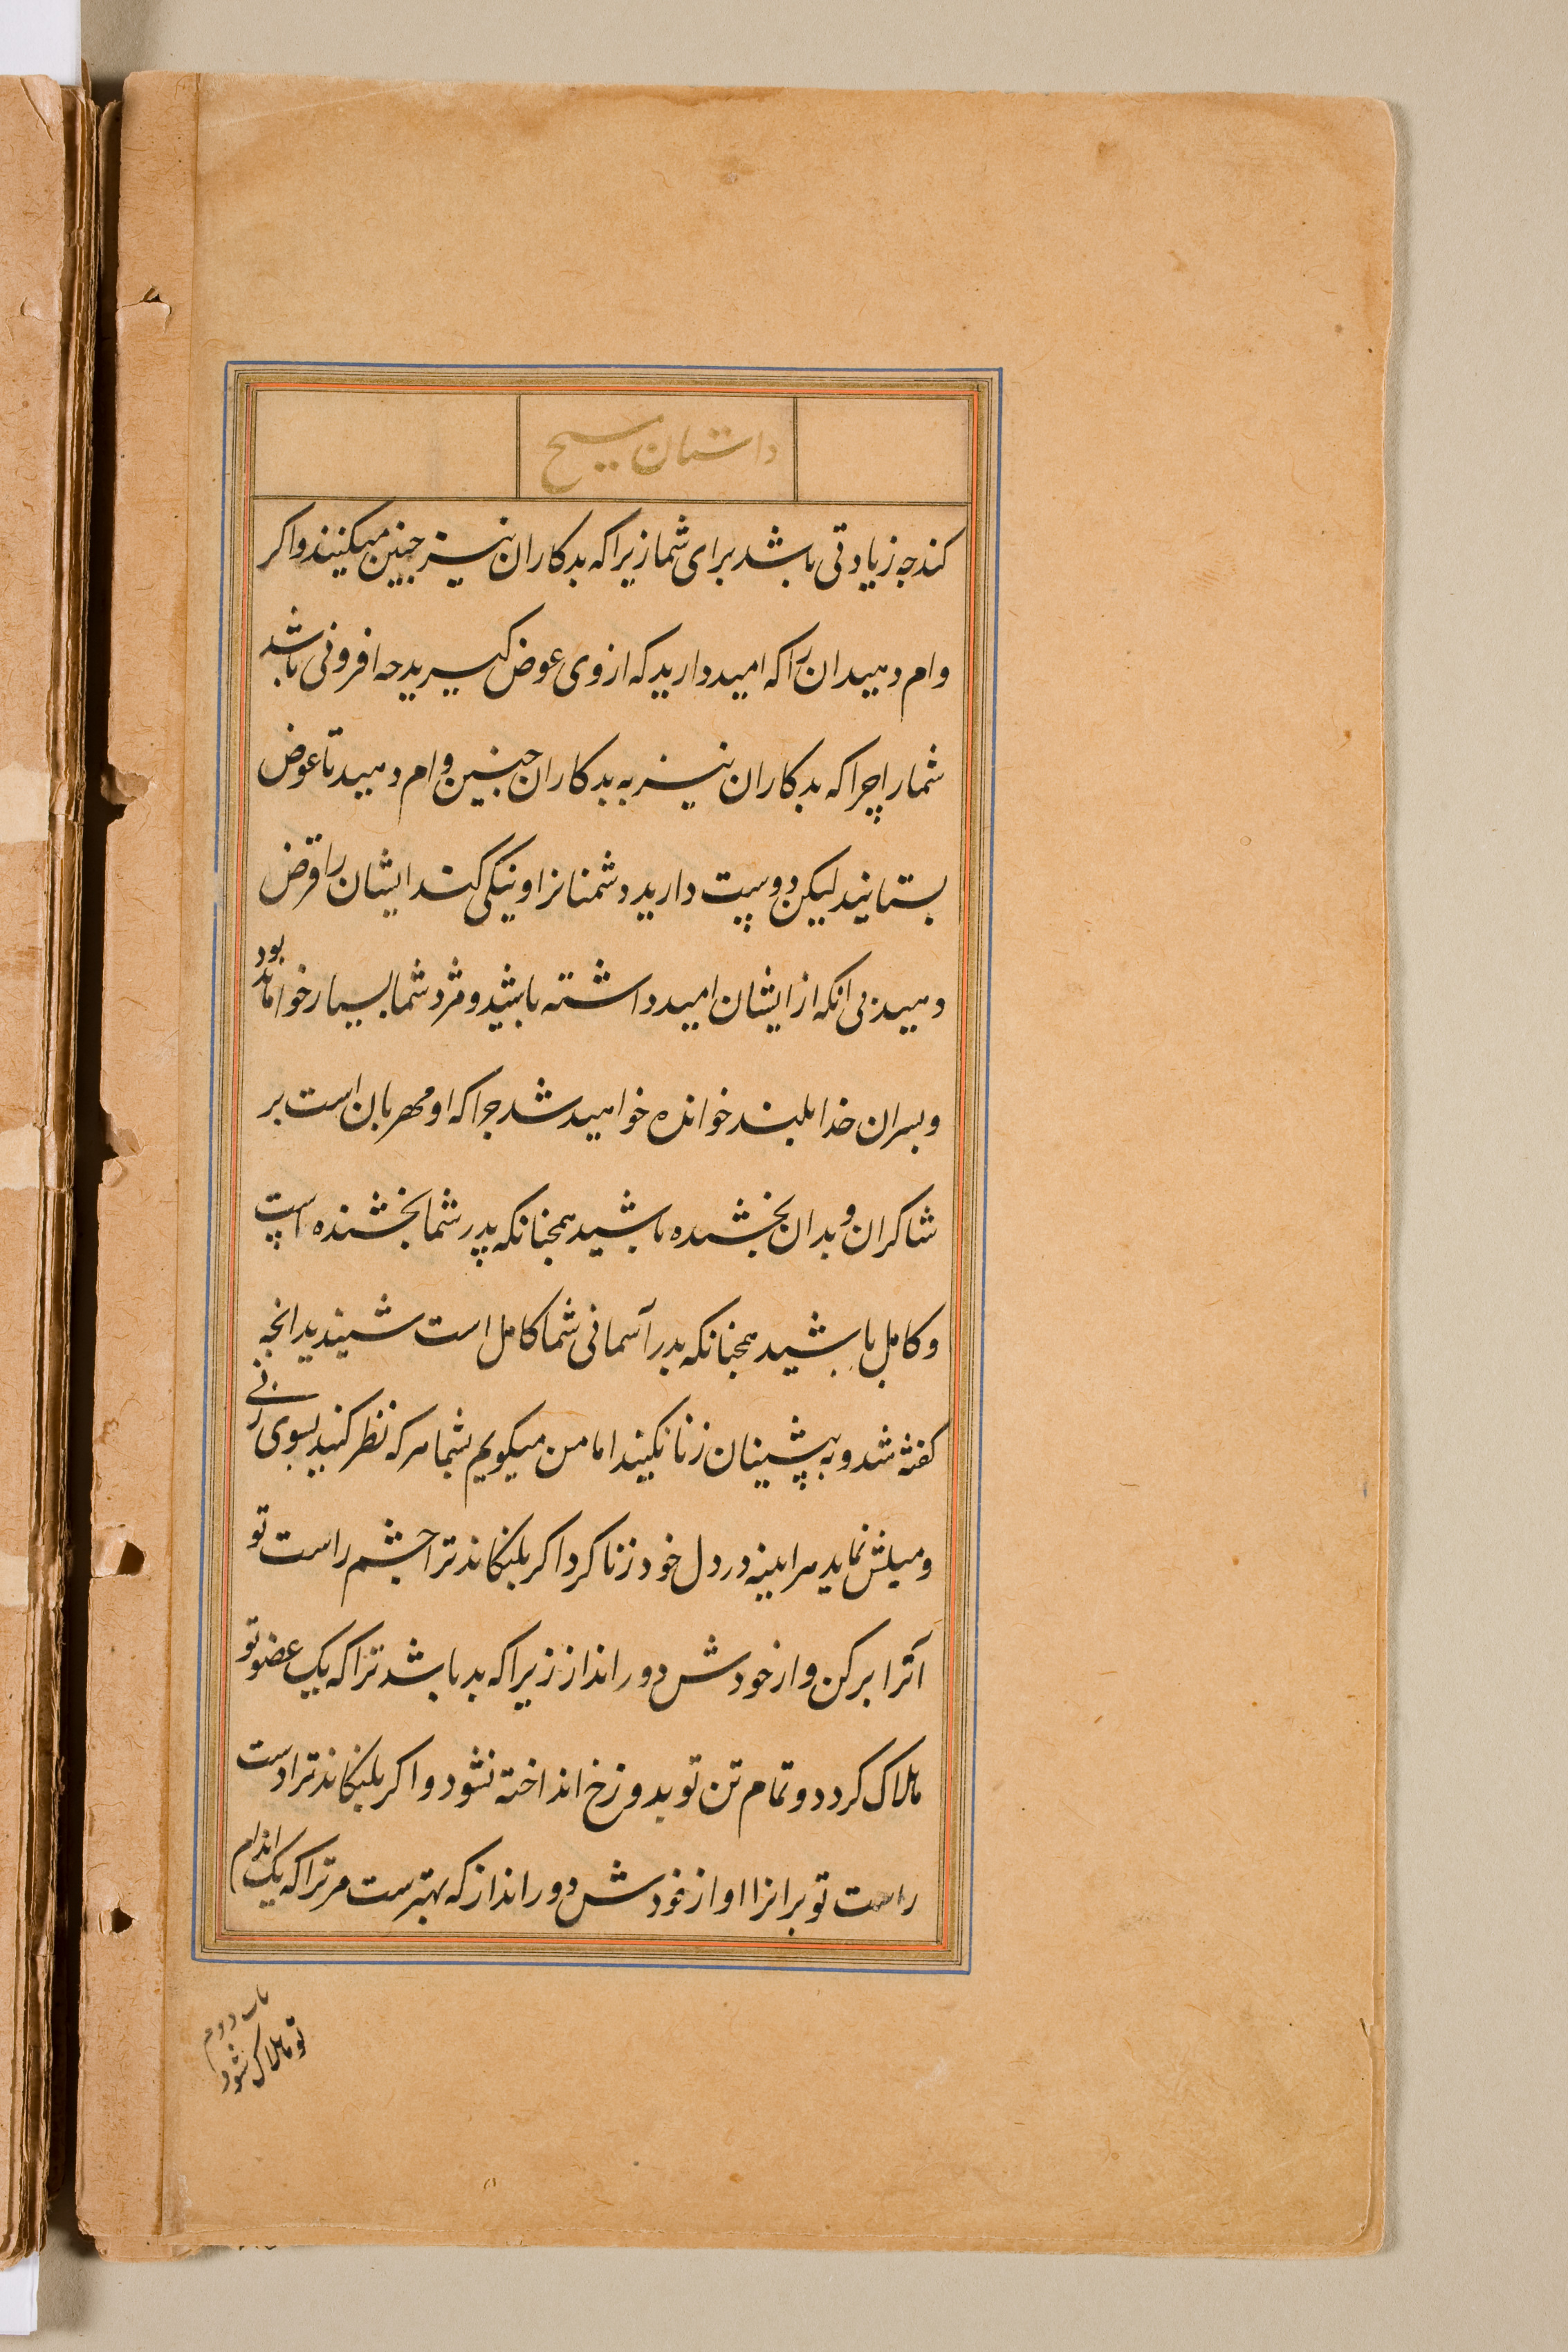 داستان مسیح
کند جه زیادتی باشد برای شما زیرا که بدکاران نیز جنین میکنند و اکر
وام دهید ان را که امید دارید که از وی عوض کیرید جه افزونی باشد
شما را چرا که بدکاران نیز به بدکاران جنین وام دهید تا عوض
بستانید لیکن دوست دارید دشمنانرا و نیکی کند ایشان را قرض
دهید بی انکه از ایشان امید داشته باشید و مزد شما بسیار خواهد بود
و بسران خدا بلند خوانده خواهید شد جرا که او مهربان است بر
شاکران و بدان بخشده باشید همجنانکه پدر شما بخشنده است
و کامل باشید همجنانکه بدر آسمانی شما کامل است شیندید انجه
کفته شد و به پیشینان زنا نکیند اما من میکویم بشما هر که نظر کنید بسوی زنی
و میلش نماید هر اینه در دل خود زنا کرد اکر بلنکاند ترا جشم راست تو
آنرا برکن و از خودش دور انداز زیرا که بد باشد ترا که یک عضو تو
هلاک کردد و تمام تن تو بدوزخ انداخته نشود و اکر بلنکاند ترا دست
راست تو بر انرا او از خودش دور انداز که بهترست مر ترا که یک اندام
باب دوم
تو هلاک شود